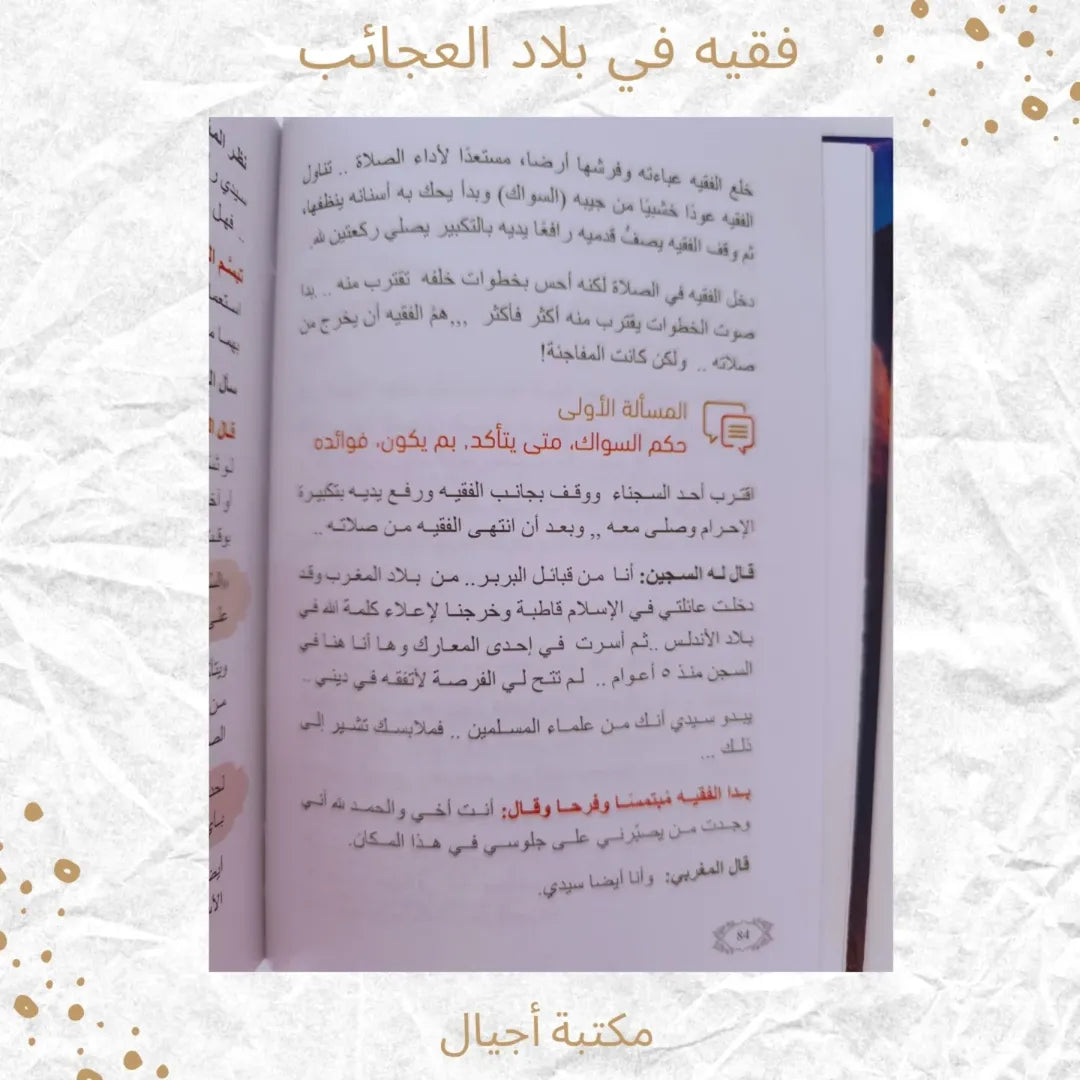 فقيه في بلاد العجائب
خلع الفقيه عباءته وفرشها أرضا، مستعدًا لأداء الصلاة .. تناول
الفقيه عودًا خشبيًا من جيبه (السواك) وبدأ يحك به أسنانه ينظفها،
ثم وقف الفقيه يصفُّ قدميه رافعًا يديه بالتكبير يصلي ركعتين لله.
دخل الفقيه في الصلاة لكنه أحس بخطوات خلفه تقترب منه .. بدا
صوت الخطوات يقترب منه أكثر فأكثر ,,,همَّ الفقيه أن يخرج من
صلاته .. ولكن كانت المفاجئة!
المسألة الأولى
حكم السواك، متى يتأكد، بم يكون، فوائده
اقترب أحد السجناء ووقف بجانب الفقيه ورفع يديه بتكبيرة
الإحرام وصلى معه ,, وبعد أن انتهى الفقيه من صلاته ..
قال له السجين: أنا من قبائل البربر.. من بلاد المغرب وقد
دخلت عائلتي في الإسلام قاطبة وخرجنا لإعلاء كلمة الله في
بلاد الأندلس ..ثم أسرت في إحدى المعارك وها أنا هنا في
السجن منذ ٥ أعوام .. لم تتح لي الفرصة لأتفقه في ديني ..
يبدو سيدي أنك من علماء المسلمين .. فملابسك تشير إلى
ذلك ...
بدا الفقيه مُبتمسًا وفرحا وقال: أنت أخي والحمد لله أني
وجدت من يصبّرني على جلوسي في هذا المكان.
قال المغربي: وأنا أيضا سيدي.
84
نظر
سيدي
.. فهل
سأل
مكتبة أجيال